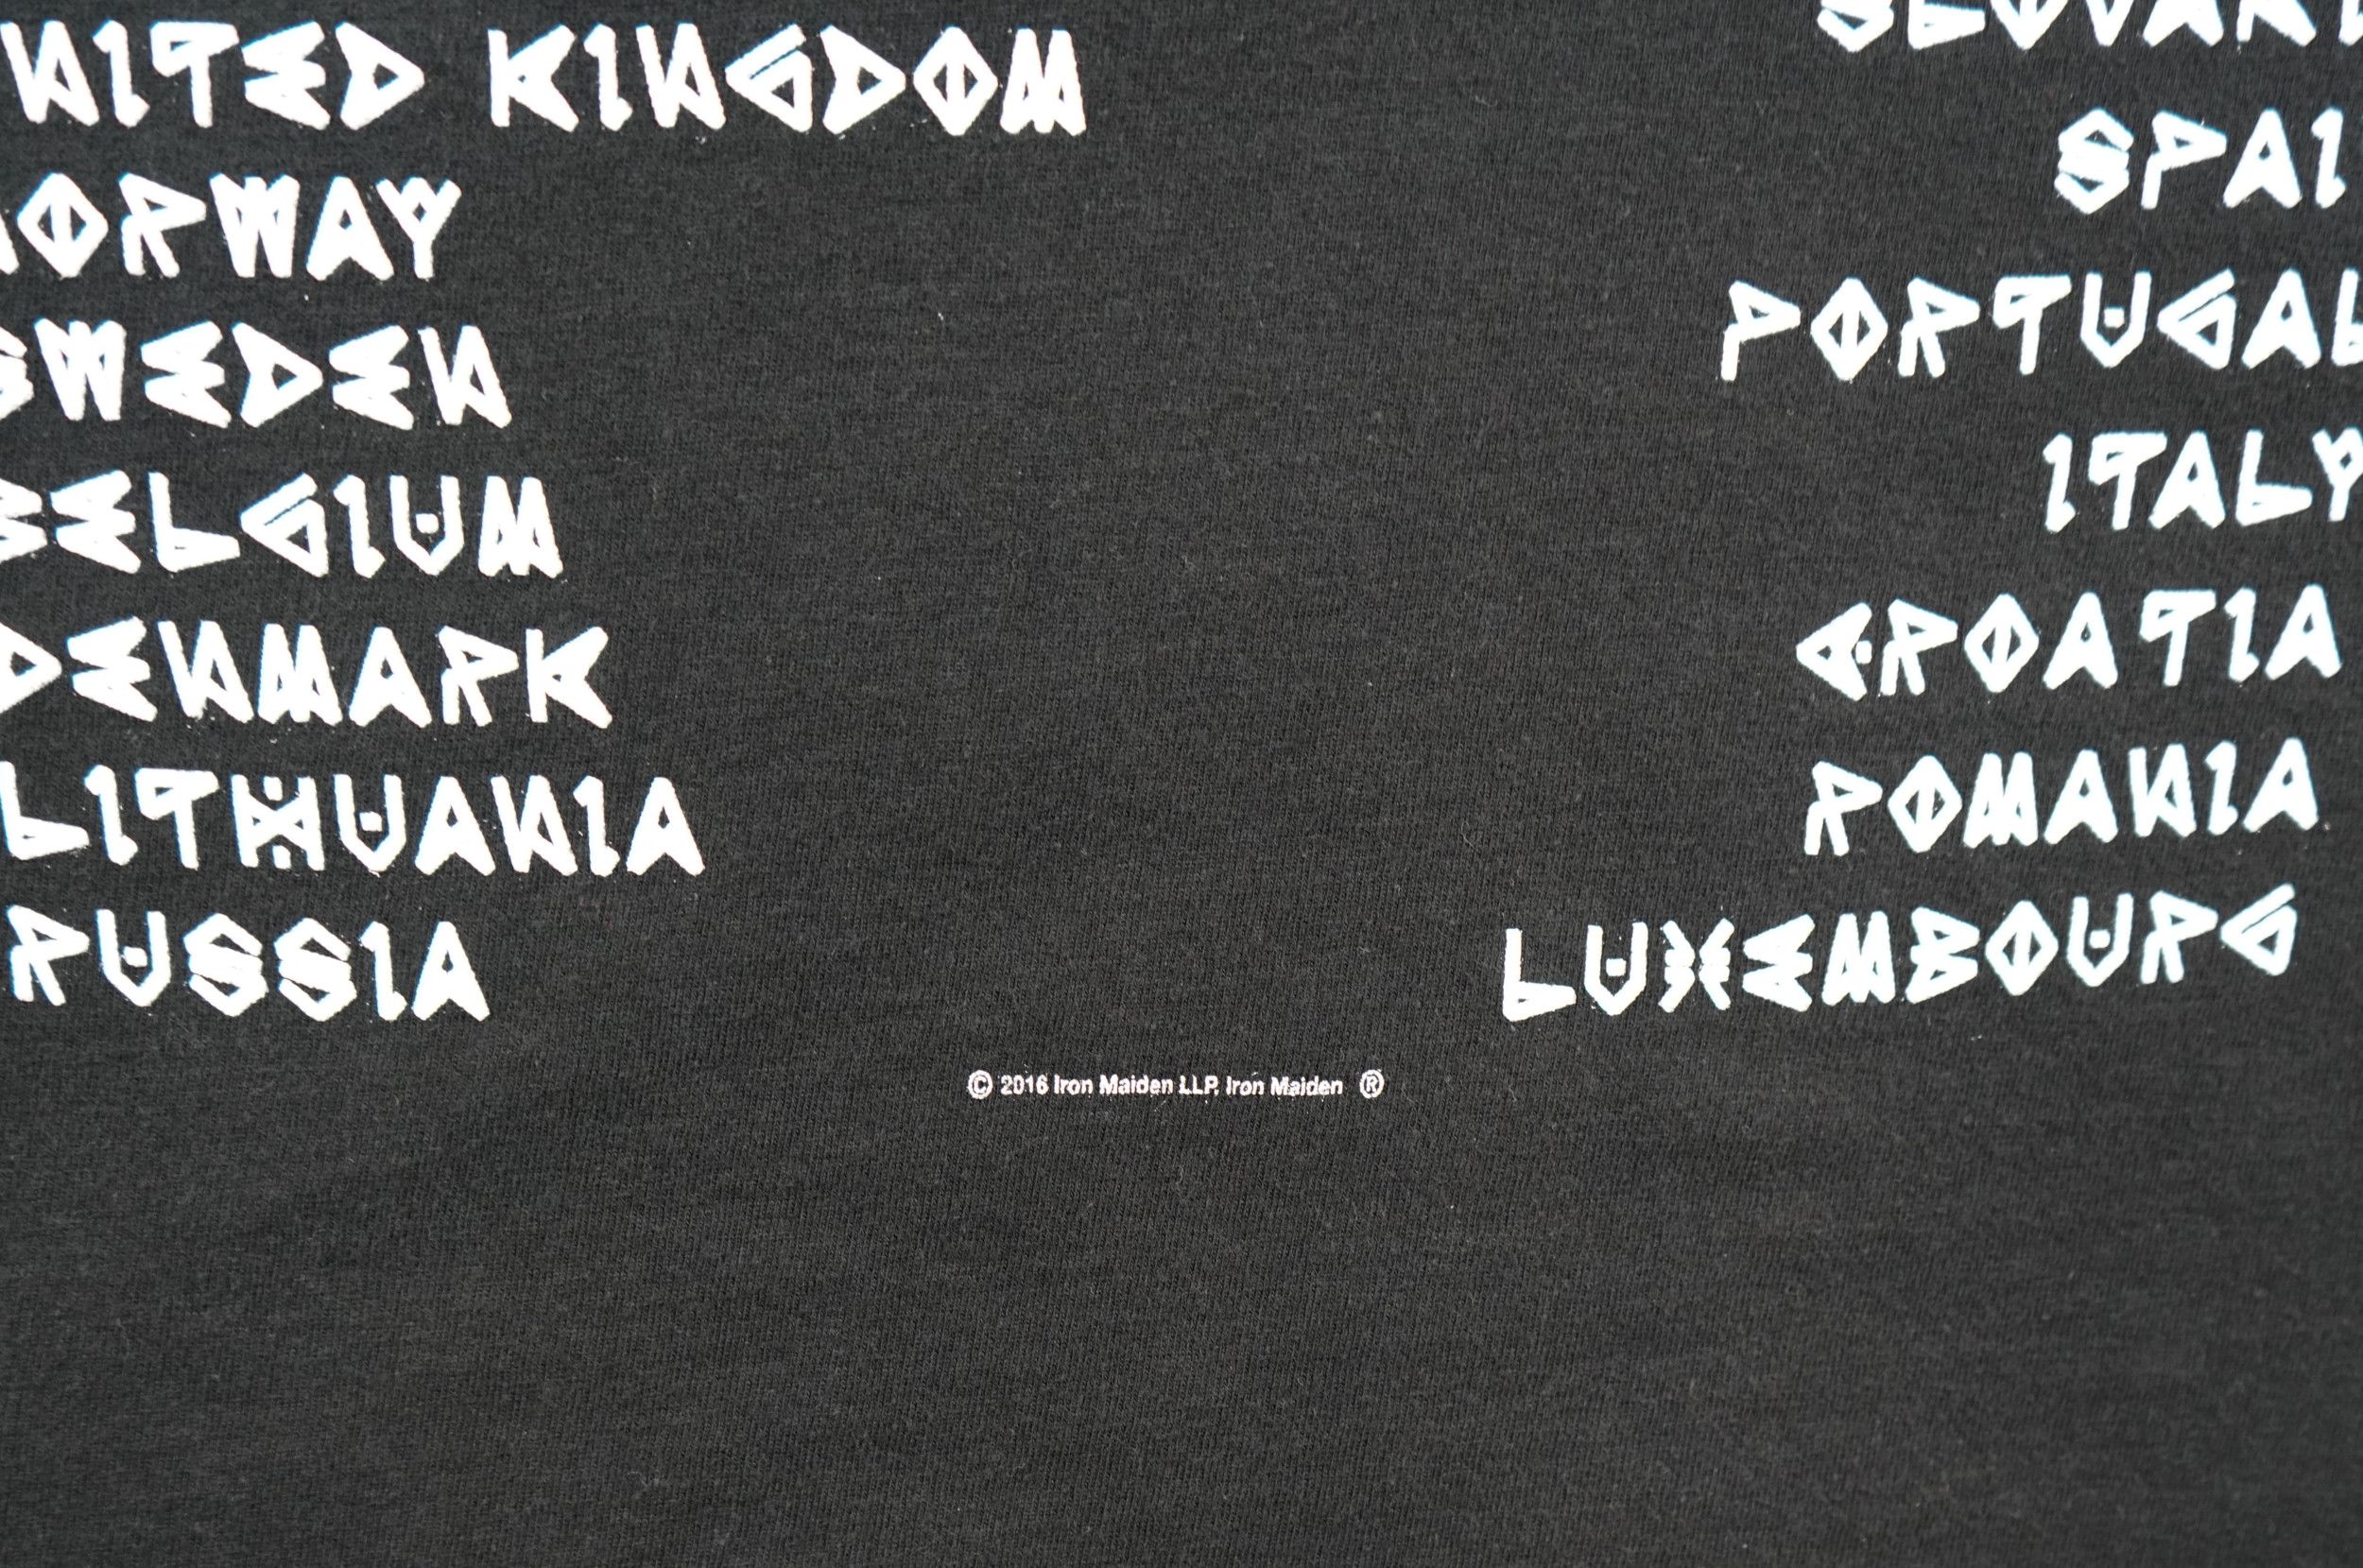 UNITED KINGDOM
NORWAY
SWEDEN
BELGIUM
DENMARK
LITHUANIA
RUSSIA
SPAIN
PORTUGAL
ITALY
CROATIA
ROMANIA
LUXEMBOURG
© 2016 Iron Maiden LLP, Iron Maiden ®